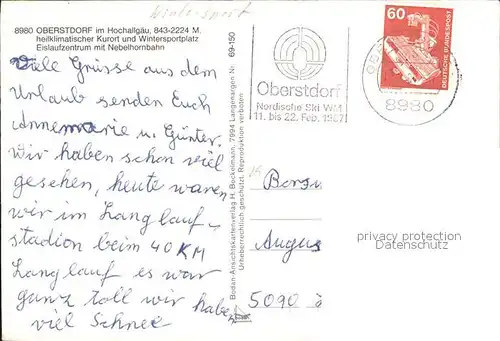 Wintersport
8980 OBERSTDORF im Hochallgäu, 843-2224 M.
heilklimatischer Kurort und Wintersportplatz
Eislaufzentrum mit Nebelhornbahn
Viele Grüsse aus dem
Urlaub senden Euch
Annemarie u. Günter.
Wir haben schon viel
gesehen, heute waren
wir im Langlauf-
stadion beim 40 KM
Langlauf es war
ganz toll wir haben
viel Schnee
69-150
Bodan-Ansichtskartenverlag H. Bockelmann, 7994 Langenargen Nr.
Urheberrechtlich geschützt. Reproduktion verboten
Oberstdorf
Nordische Ski WM
11. bis 22. Feb. 1987
60
DEUTSCHE BUNDESPOST
8980
Augus
5090
privacy protection
Datenschutz